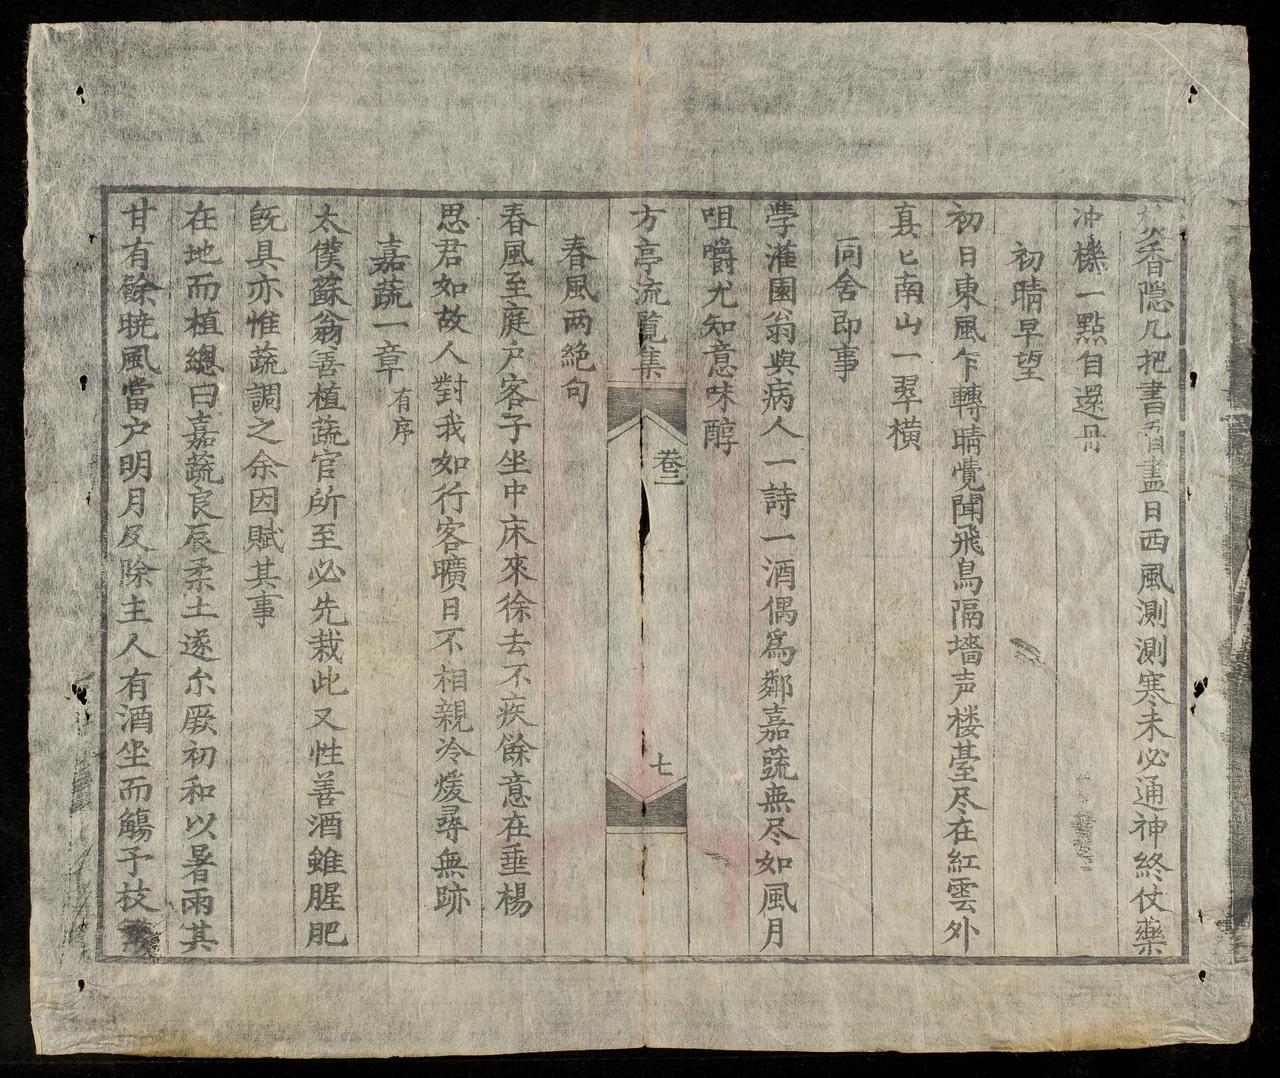 香隠几把書看盡日西風測測寒未必通神終仗藥
冲機一點自還丹
初晴早望
初日東風乍轉晴覺聞飛鳥隔墻声楼䑓尽在紅雲外
真匕南山一翠橫
同舍即事
學灌園翁與病人一詩一酒偶為鄰嘉蔬無尽如風月
咀嚼尤知意味醇
方亭流覧集
卷二
七
春風两絶句
春風至庭户客子坐中床來徐去不疾餘意在垂楊
思君如故人對我如行客曠日不相親冷煖尋無跡
嘉蔬一章 有序
太僕蘇翁善植蔬官所至必先栽此又性善酒雖腥肥
既具亦惟蔬調之余因賦其事
在地而植總曰嘉蔬良辰柔土遂尓厥初和以暑雨其
甘有餘暁風當户明月及除主人有酒坐而觴予技